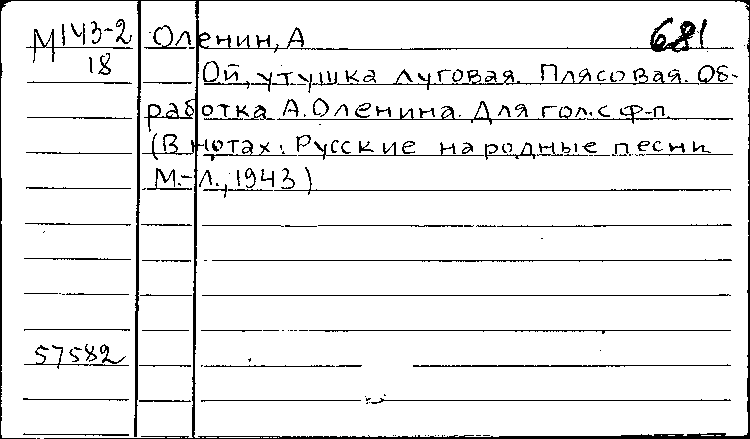 М143-2 Оленин, А 681
18
Ой, утушка луговая. Плясовая. Об-
работка А.Оленина. Для гол.с ф-п.
(В нотах: Русские народные песни
М.-Л., 1943)
57582